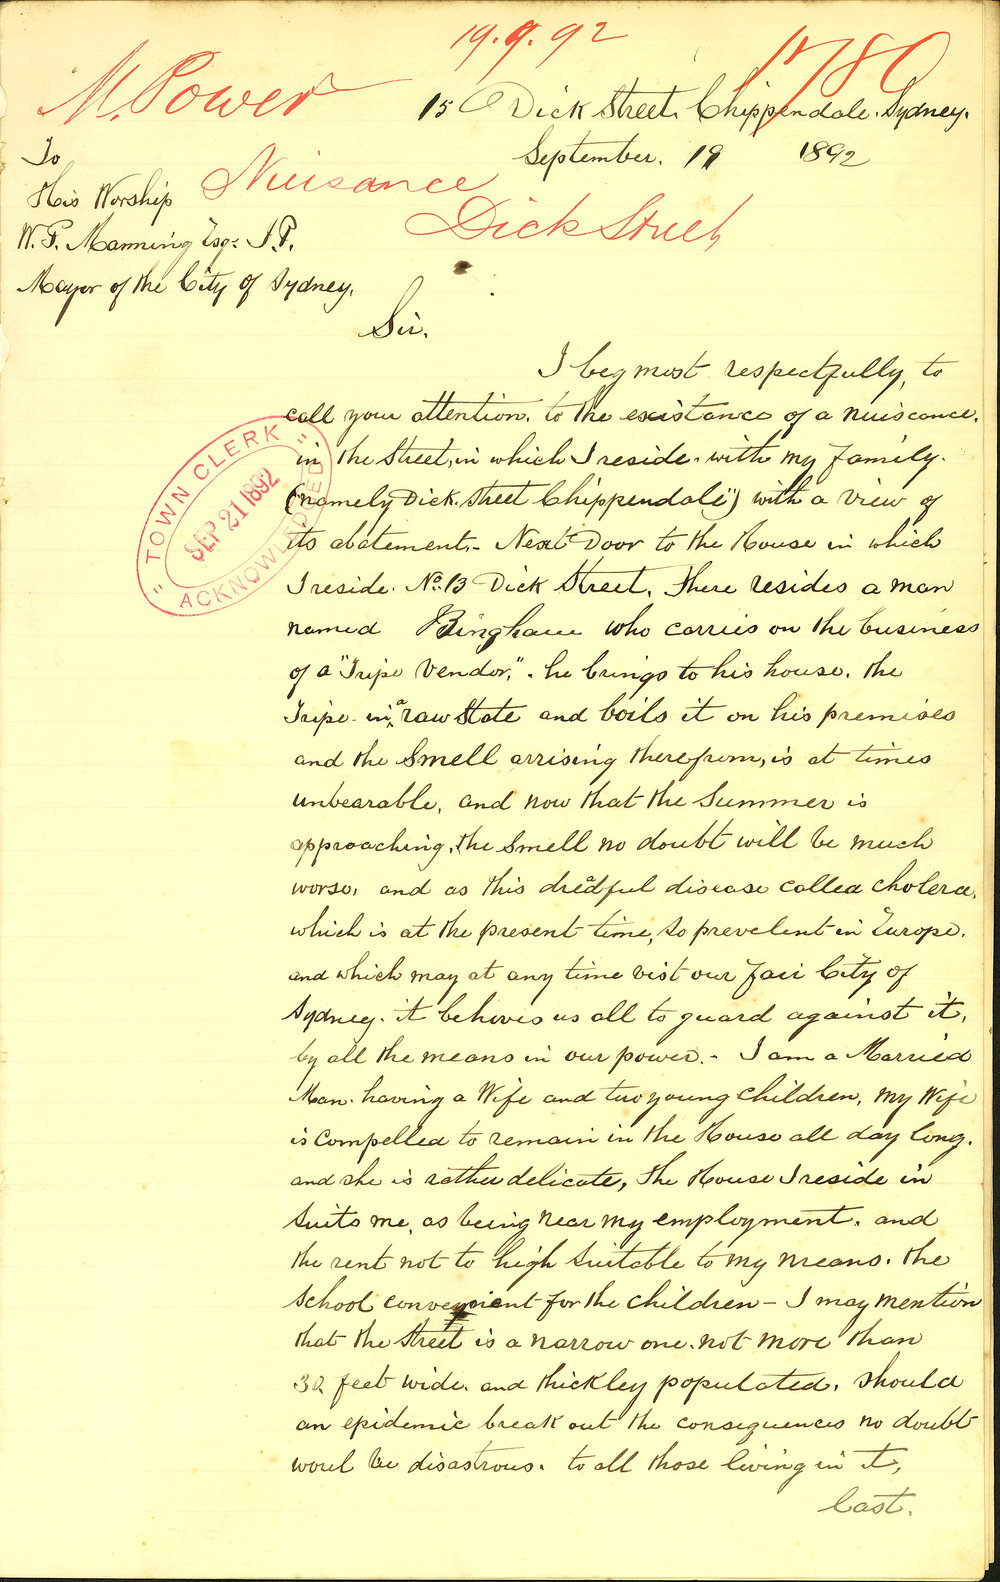 19.9.92
1780
M. Power
15 Dick Street. Chippendale. Sydney.
September. 19 1892
To
His Worship
Nuisance
Dick Street
W. P. Manning Esqr J.P.
Mayor of the City of Sydney.
Sir.
I beg most respectfully, to
call your attention. to the existance of a nuiscance.
in the Street, in which I reside. with my family.
(namely Dick. Street Chippendale") with a view of
its abatement.- Next Door to the House in which
I reside. No. 13 Dick Street. There resides a man
named Bingham who carries on the business
of a "Tripe Vendor,". he brings to his house. the
Tripe in a raw State and boils it on his premises
and the Smell arrising therefrom, is at times
unbearable, and now that the Summer is
approaching, the Smell no doubt will be much
worse, and as this dreadful disease called cholera.
which is at the present time, so prevelent in Europe.
and which may at any time vist our fair City of
Sydney. it behoves us all to guard against it,
by all the means in our power.- I am a Married
Man. having a Wife and two young Children, My Wife
is compelled to remain in the House all day long.
and she is rather delicate, The House I reside in
suits me, as being near my employment. and
the rent not to high Suitable to my means. the
School convenient for the children - I may mention
that the Street is a narrow one. not more than
32 feet wide. and thickley populated. should
an epidemic break out the consequences no doubt
woul be disastrous. to all those living in it,
Cast.
"TOWN CLERK"
SEP 21 1892
ACKNOWLEDGED